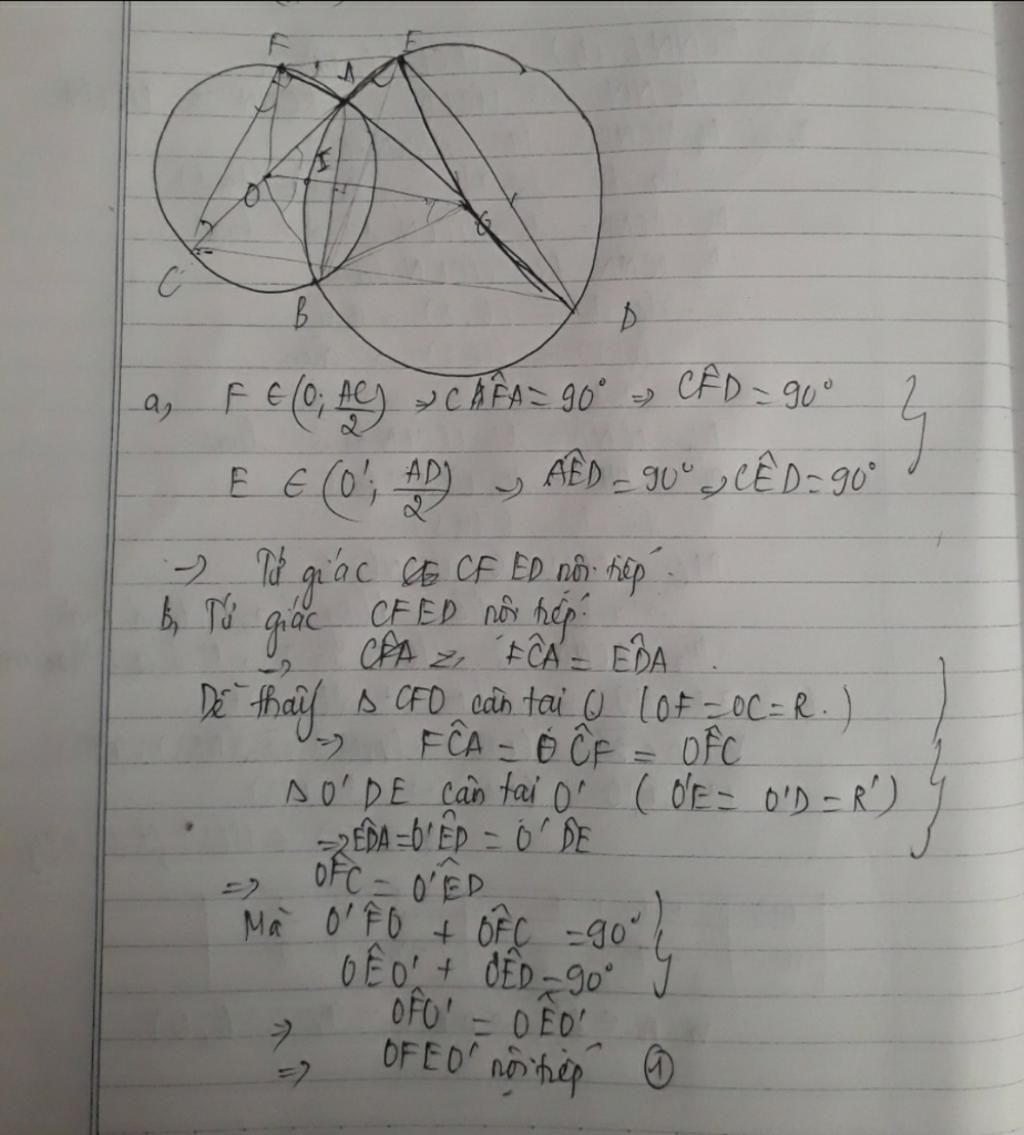 F A E
I
O
O'
C
B
D
a, F ∈ (O; AC/2) => CÂF̂A = 90° => CF̂D = 90°
E ∈ (O'; AD/2) => AÊD = 90° => CÊD = 90°
-> Tứ giác CF ED nội tiếp.
b, Tứ giác CFED nội tiếp
=> FĈA = ED̂A.
Dễ thấy Δ CFO cân tại O (OF = OC = R.)
=> FĈA = OĈF = OF̂C
Δ O'DE cân tại O' (O'E = O'D = R')
=> ED̂A = O'ÊD = O'D̂E
=> OF̂C = O'ÊD
Mà O'F̂O + OF̂C = 90°
OÊO' + O'ÊD = 90°
=> OF̂O' = OÊO'
=> OFEO' nội tiếp ①